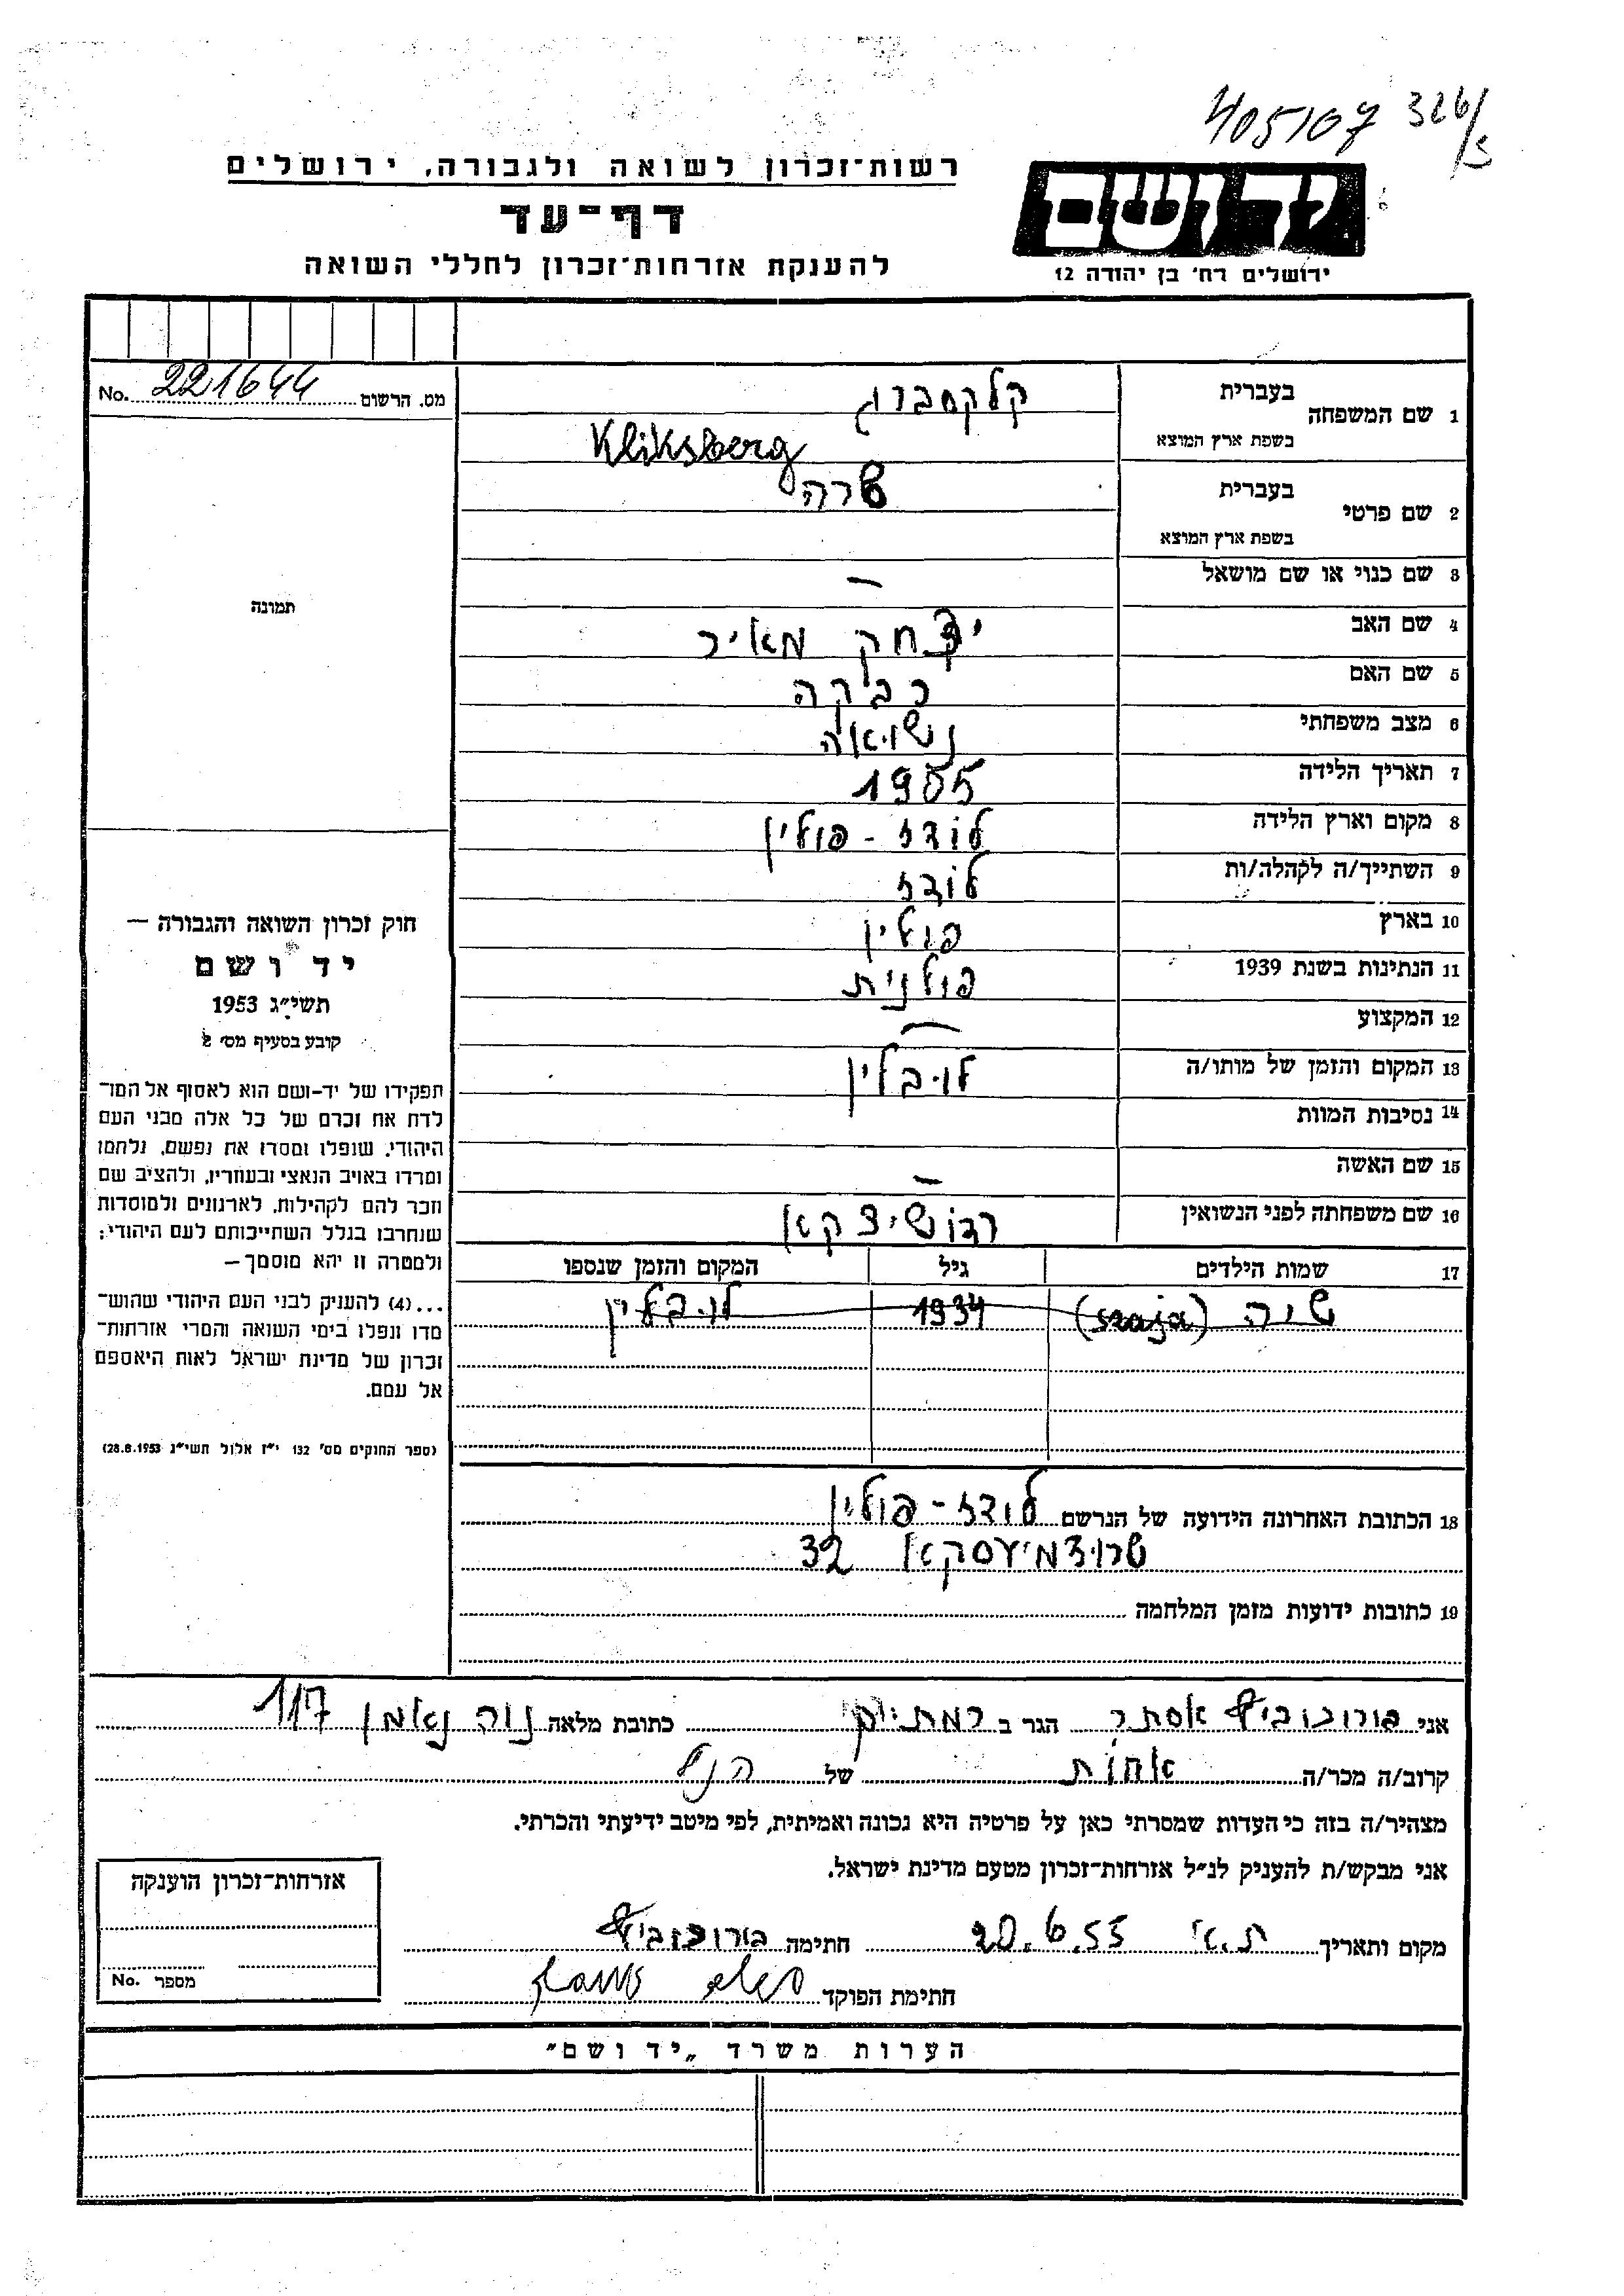 405107 326/
רשות־זכרון לשואה ולגבורה, ירושלים
דף־עד
להענקת אזרחות־זכרון לחללי השואה
יד ושם
ירושלים רח' בן יהודה 12
No. 221644 מס. הרשום
1 שם המשפחה בעברית קלקסברוג
בשפת ארץ המוצא Kliksberg
2 שם פרטי בעברית שרה
בשפת ארץ המוצא
3 שם כנוי או שם מושאל —
4 שם האב יצחק מאיר
5 שם האם רבקה
6 מצב משפחתי נשואה
7 תאריך הלידה 1905
8 מקום וארץ הלידה לודז - פולין
9 השתייך/ה לקהלה/ות לודז
10 בארץ פולין
11 הנתינות בשנת 1939 פולנית
12 המקצוע —
13 המקום והזמן של מותו/ה לובלין
14 נסיבות המוות
15 שם האשה —
16 שם משפחתה לפני הנשואין
17 שמות הילדים גיל המקום והזמן שנספו
שיה (szaja) 1934 לובלין
תמונה
חוק זכרון השואה והגבורה —
יד ושם
תשי"ג 1953
קובע בסעיף מס' 2
תפקידו של יד-ושם הוא לאסוף אל המו־
לדת את זכרם של כל אלה מבני העם
היהודי, שנפלו ומסרו את נפשם, נלחמו
ומרדו באויב הנאצי ובעוזריו, ולהציב שם
וזכר להם לקהילות, לארגונים ולמוסדות
שנחרבו בגלל השתייכותם לעם היהודי;
ולמטרה זו יהא מוסמך —
...(4) להעניק לבני העם היהודי שהוש־
מדו ונפלו בימי השואה והמרי אזרחות־
זכרון של מדינת ישראל לאות היאספם
אל עמם.
(ספר החוקים מס' 132 י"ז אלול תשי"ג 28.8.1953)
18 הכתובת האחרונה הידועה של הנרשם לודז - פולין
32
19 כתובות ידועות מזמן המלחמה
אני אסתר הגר ב כתובת מלאה נוה נאמן 117
קרוב/ה מכר/ה אחות של הנ"ל
מצהיר/ה בזה כי העדות שמסרתי כאן על פרטיה היא נכונה ואמיתית, לפי מיטב ידיעתי והכרתי.
אני מבקש/ת להעניק לנ"ל אזרחות־זכרון מטעם מדינת ישראל.
מקום ותאריך ת.א. 20.6.55 חתימה
חתימת הפוקד
אזרחות־זכרון הוענקה
No. מספר
הערות משרד „יד ושם"